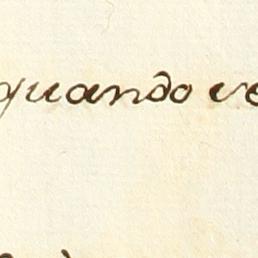 quando ve